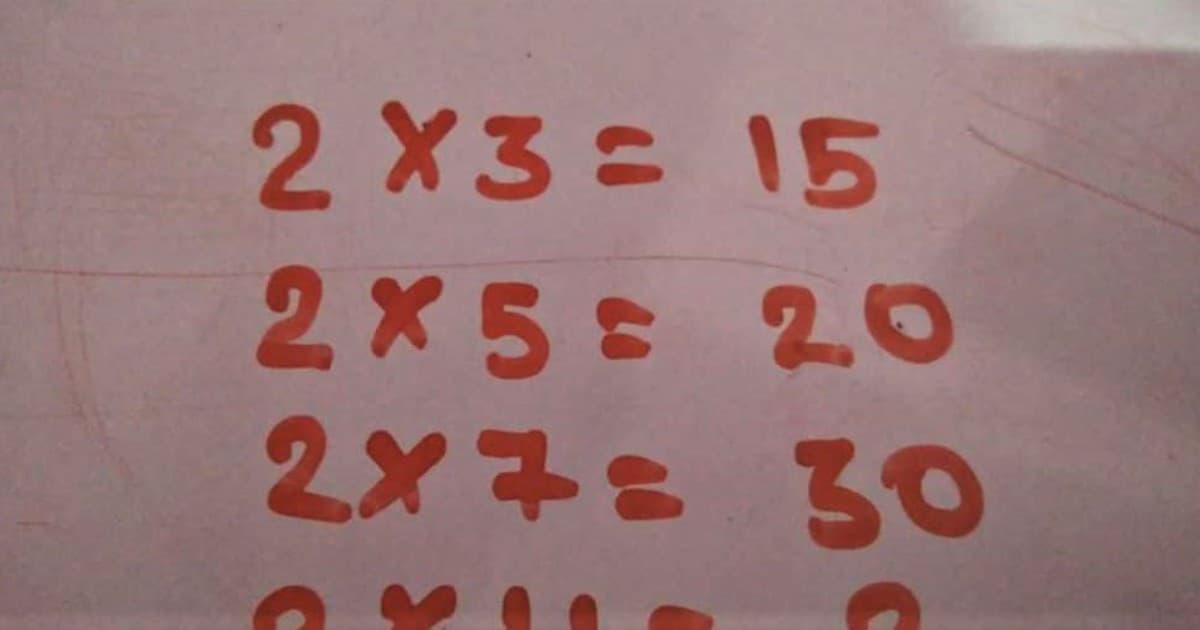 2 × 3 = 15
2 × 5 = 20
2 × 7 = 30
2 × 11 = ?